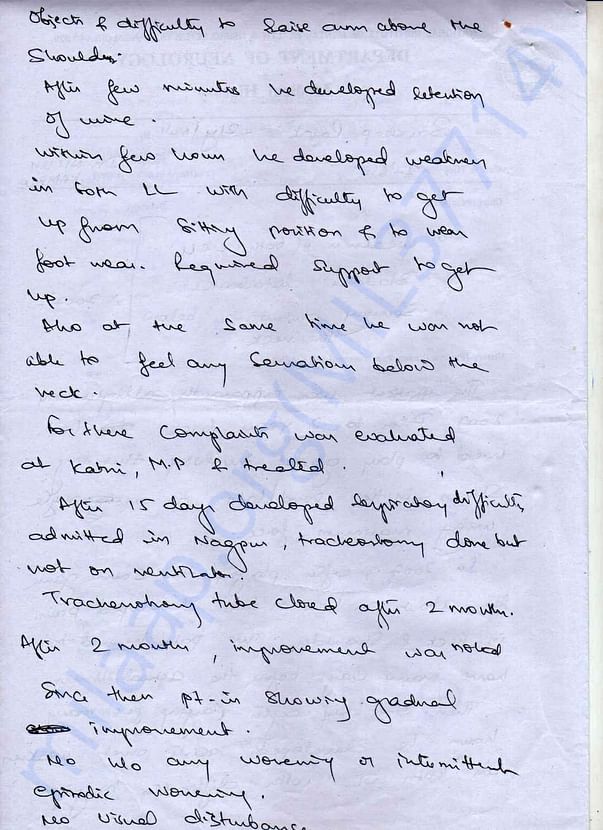 Objects & difficulty to raise arm above the
Shoulder.
After few minutes he developed retention
of urine.
Within few hours he developed weakness
in both LL with difficulty to get
up from sitting position & to wear
foot wear. Required support to get
up.
Also at the same time he was not
able to feel any sensations below the
neck.
For these complaints was evaluated
at Katni, M.P & treated.
After 15 days developed respiratory difficulty,
admitted in Nagpur, tracheostomy done but
not on ventilator.
Tracheostomy tube closed after 2 months.
After 2 months, improvement was noted
Since then pt-is showing gradual
improvement.
No h/o any worsening or intermittent
episodic worsening.
No visual disturbance
milaap.org(MIL37714)